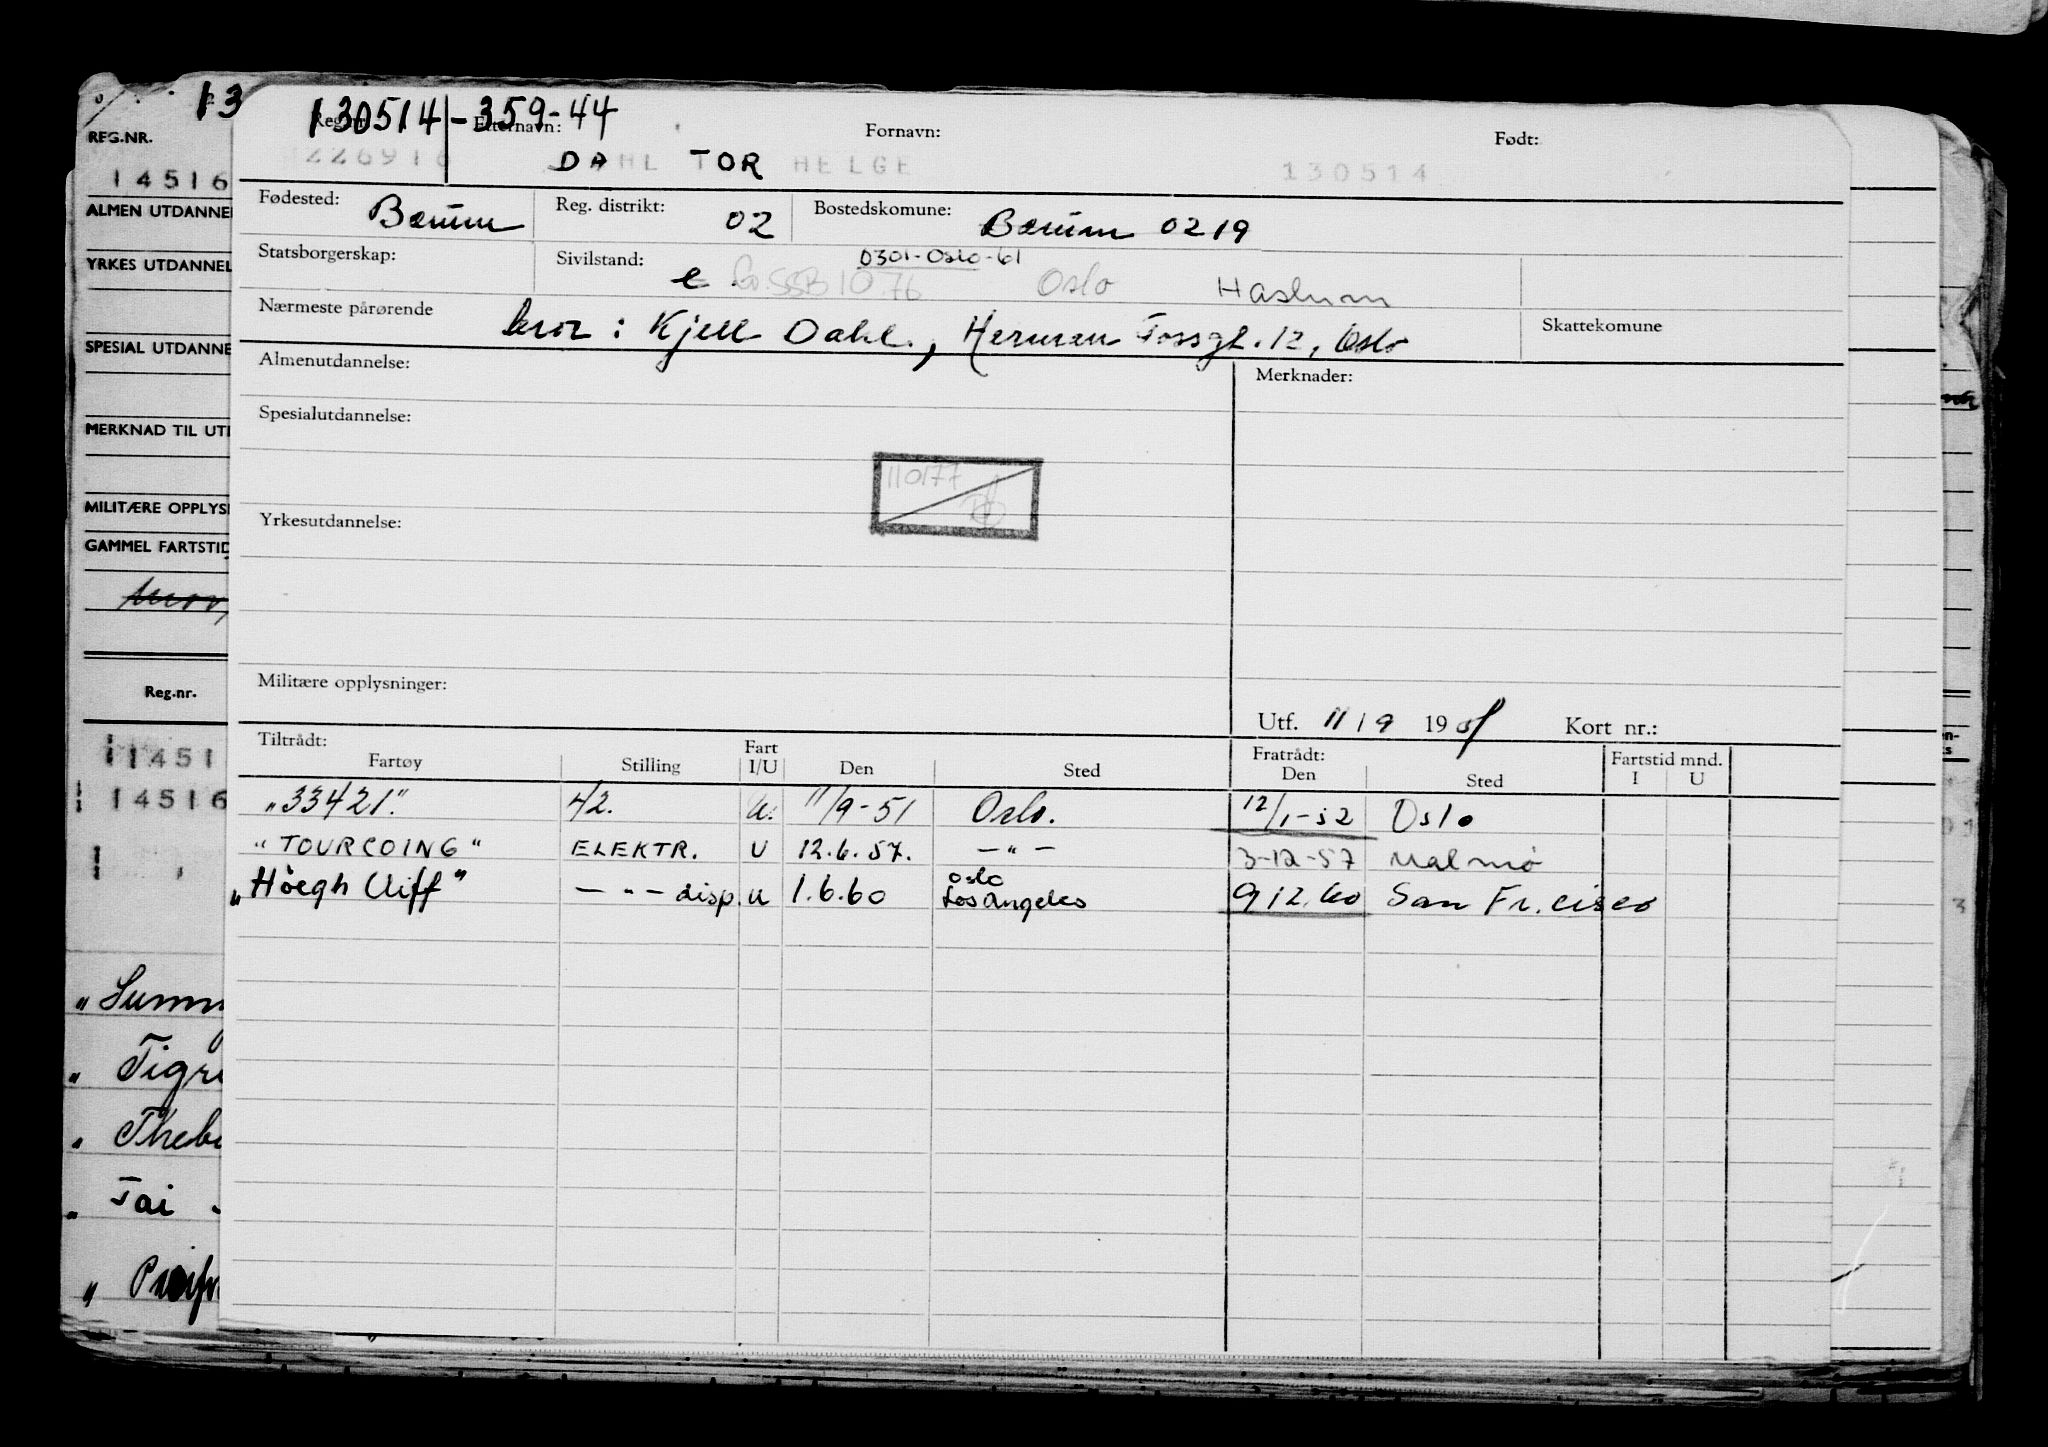 13
130514-359-44
REG.NR. Reg.nr. Etternavn: Fornavn: Født:
226916 DAHL TOR HELGE 130514
14516
Fødested: Bærum Reg. distrikt: 02 Bostedskomune: Bærum 0219
ALMEN UTDANNE
Statsborgerskap: Sivilstand: e 0301-Oslo-61
YRKES UTDANNEL
SSB 10.76 Oslo Haslum
Nærmeste pårørende bror: Kjell Dahl, Herman Fossgt. 12, Oslo Skattekomune
SPESIAL UTDANNE
Almenutdannelse: Merknader:
Spesialutdannelse:
MERKNAD TIL UT
110177
MILITÆRE OPPLYS
Yrkesutdannelse:
GAMMEL FARTSTID
Militære opplysninger:
Reg.nr.
Utf. 11/9 1951 Kort nr.:
Tiltrådt: Fratrådt: Fartstid mnd.
Fartøy Stilling Fart I/U Den Sted Den Sted I U
1451
"33421". 42. U. 11/9-51 Oslo. 12/1-52 Oslo
14516
"TOURCOING" ELEKTR. U 12.6.57. -"- 3-12-57 Malmø
"Höegh Cliff" -"- disp. U 1.6.60 Oslo Los Angeles 9.12.60 San Fr.cisco
"Summ
" Tigr
" Theb
" Tai
"